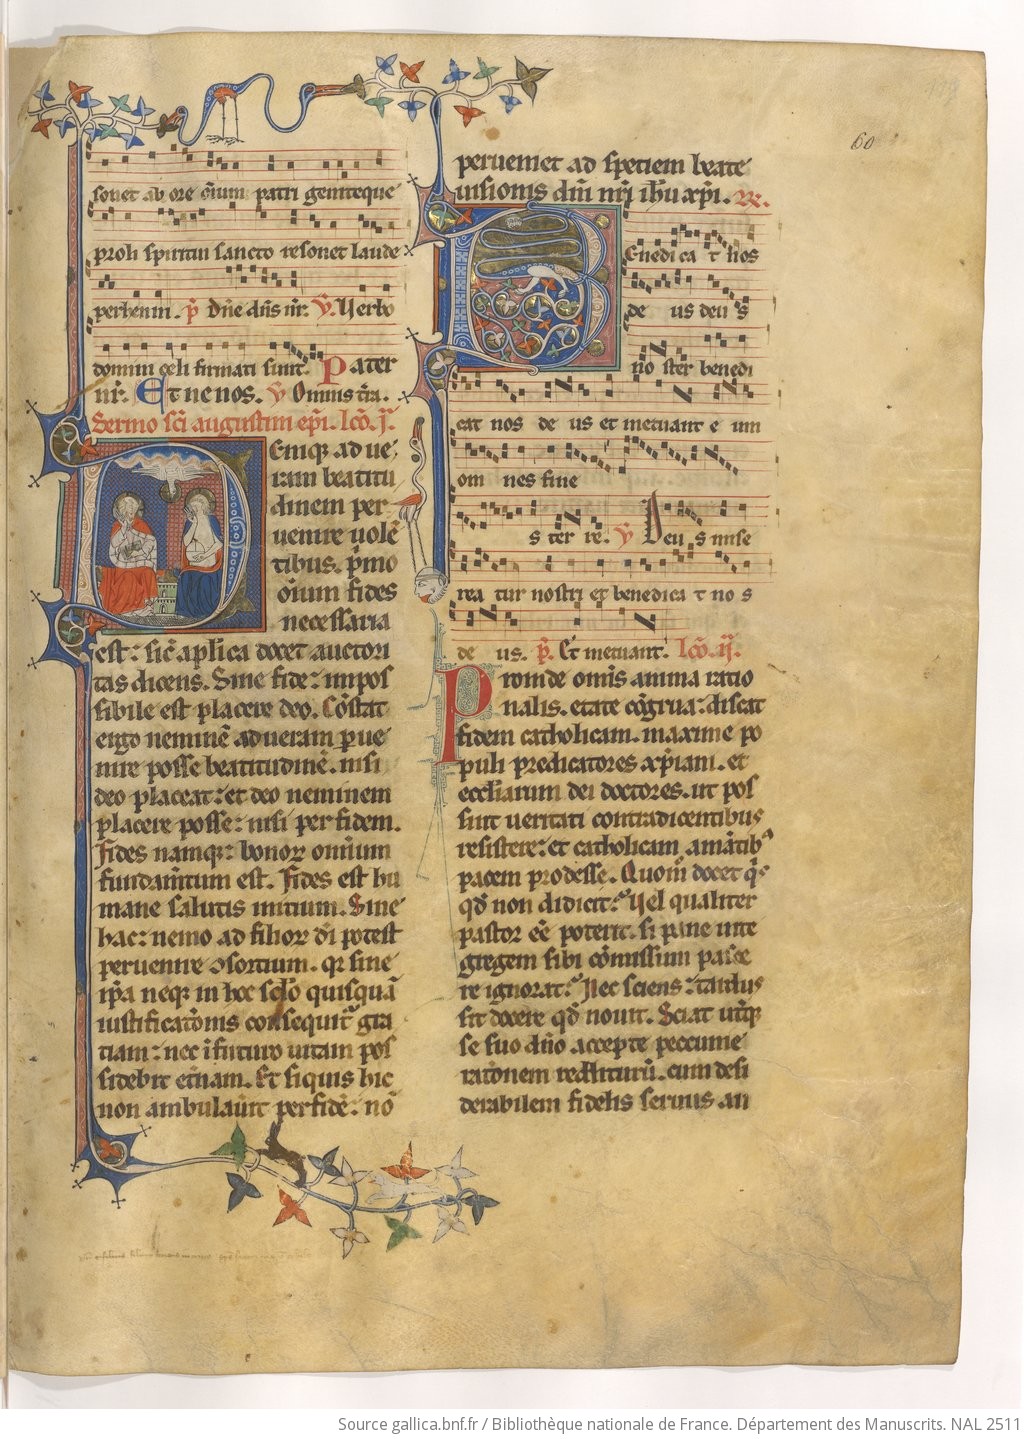 sonet ab ore oĩum patri geniteque
proli spiritui sancto resonet laude
perhenni. p̃ Dñe dñs nr̃. ṽ. Verbo
domini celi firmati sunt. Pater
nr̃. Et ne nos. ṽ Omnis tr̃a.
Sermo sc̃i augustini ep̃i. lcõ. j̃.
Enĩq; ad ue
ram beatitu
dinem per
uenire uolẽ
tibus. p̃mo
oĩum fides
necessaria
est: sic̃ apl̃ica docet auctori
tas dicens. Sine fide: impos
sibile est placere deo. Cõstat
ergo neminẽ ad ueram p̱ue
nire posse beatitudinẽ. nisi
deo placeat: et deo neminem
placere posse: nisi per fidem.
Fides namq;: bonoꝝ omnium
fundam̃tum est. Fides est hu
mane salutis initium. Sine
hac: nemo ad filioꝝ dĩ potest
peruenire ꝯsortium. qr̃ sine
ip̃a neq; in hoc sc̃lo quisquã
iustificatõnis consequit᷑ gra
tiam: nec ĩ futuro uitam pos
sidebit et̃nam. Et si quis hic
non ambulaũit per fidẽ: nõ
60
perueniet ad spetiem beate
uisionis dñi nr̃i ih̃u xp̃i. R̃.
Enedica t nos
de us deu s
no ster benedi
cat nos de us et metuant e um
om nes fine
s ter re. ṽ Deu s mise
rea tur nostri et benedica t no s
de us. p̃. Et metuant. lcõ. ij̃.
Proinde omĩs anima ratio
nalis. etate cõgrua: discat
fidem catholicam. maxime po
puli predicatores xp̃iani. et
eccl̃iarum dei doctores. ut pos
sint ueritati contradicentibus
resistere: et catholicam amãtibꝰ
pacem prodesse. Quom̊ docet q̃s
qđ non didicit: Vel qualiter
pastor eẽ poterit. si pane uite
gregem sibi cõmissum pasce
re ignorat: Nec sciens: tardus
sit docere qđ nouit. Sciat utiq;
se suo dño accepte peccunie
ratõnem redditurũ. cum desi
derabilem fidelis seruus an
Source gallica.bnf.fr / Bibliothèque nationale de France. Département des Manuscrits. NAL 2511